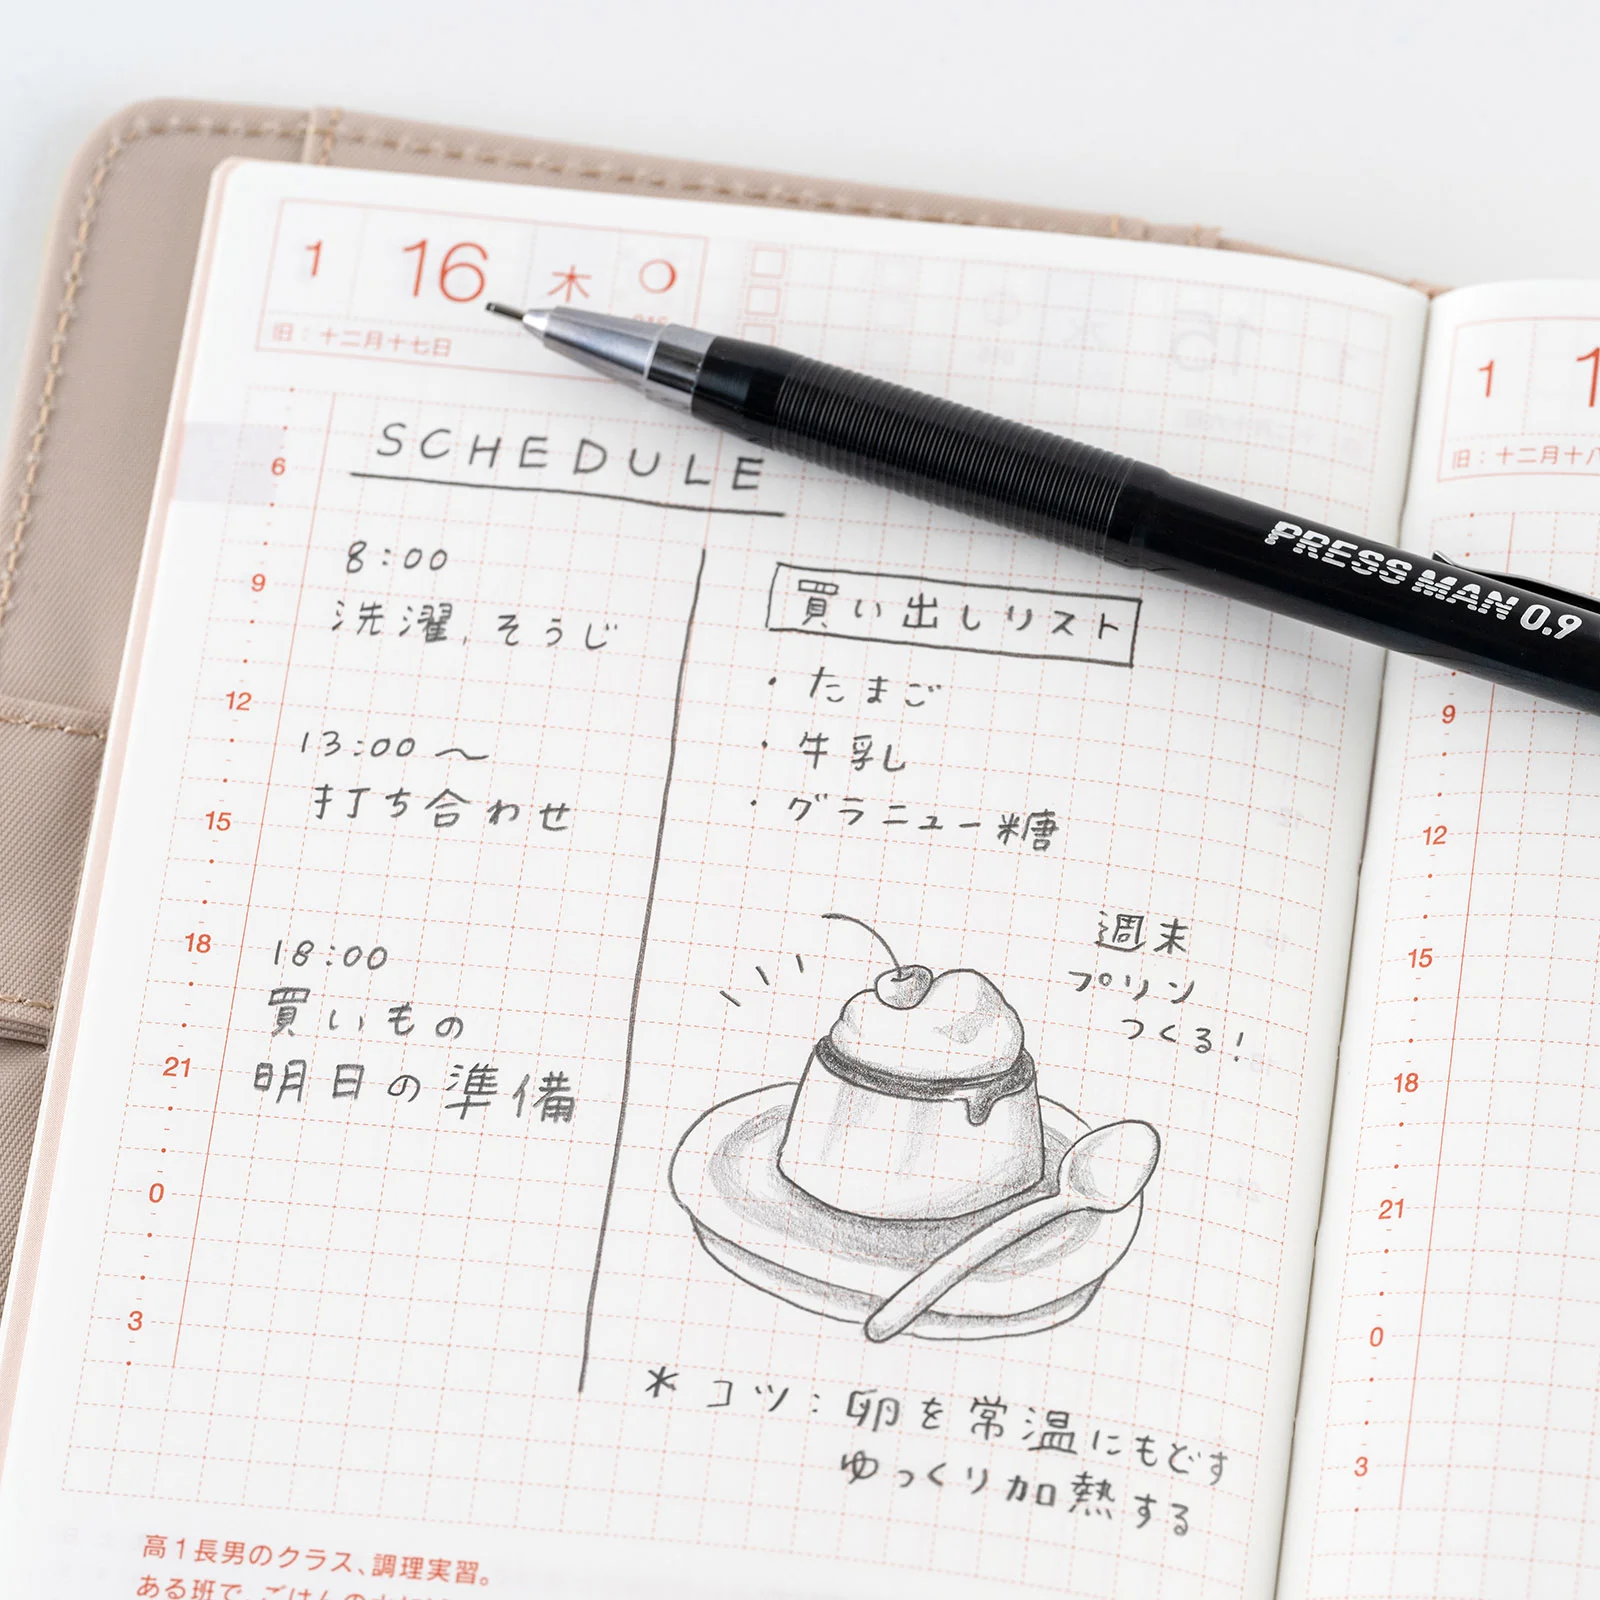 1 16 木
旧：十二月十七日
SCHEDULE
8:00
洗濯, そうじ
13:00 〜
打ち合わせ
18:00
買いもの
明日の準備
買い出しリスト
・たまご
・牛乳
・グラニュー糖
週末
プリン
つくる!
* コツ：卵を常温にもどす
ゆっくり加熱する
6
9
12
15
18
21
0
3
高1長男のクラス、調理実習。
ある班で、ごはんの
PRESS MAN 0.9
1
旧：十二月十八
9
12
15
18
21
0
3